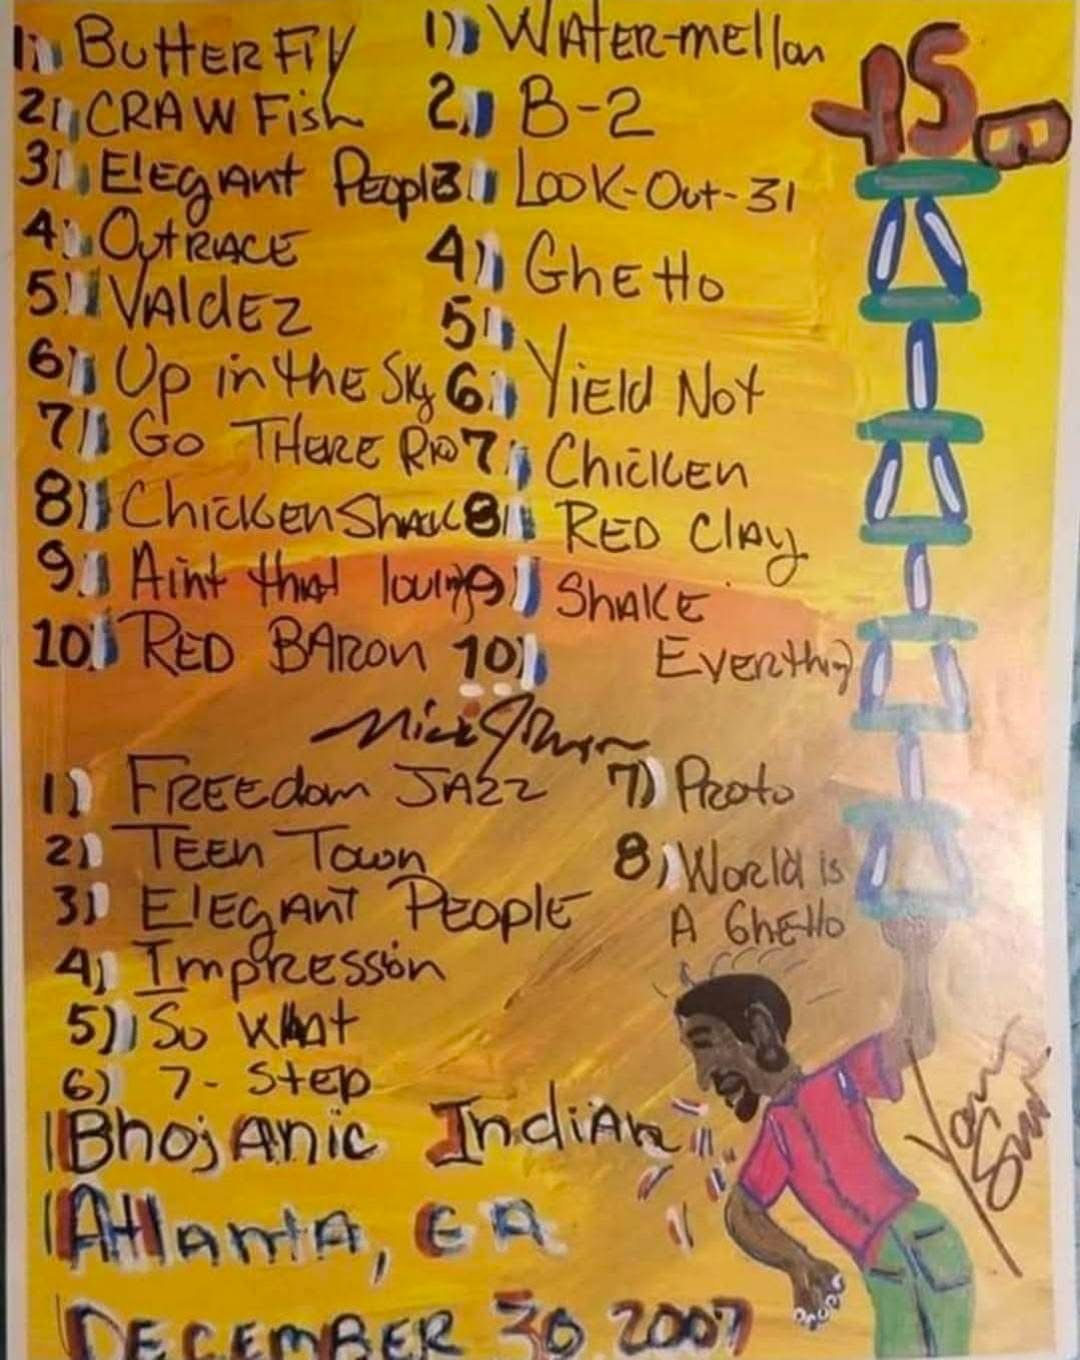 1) Butterfly
2) CRAW Fish
3) Elegant People
4) OutRIACE
5) ValdEz
6) Up in the Sky
7) Go THERE
8) ChickEn Shak
9) Aint that loving
10) RED BARon
1) WAtER-mellon
2) B-2
3) Look-Out-31
4) GhEtto
5)
6) YiEld Not
7) ChickEn
8) RED Clay
9) ShakE
EvErything
10)
YSB
Nick
1) FREEdom JAzz
2) TEEn Town
3) ElEgAnt PEoplE
4) ImpREssion
5) So WhAt
6) 7- StEp
7) Proto
8) World is
A GhEtto
BhojAnic IndiAn
AtlAntA, GA
DECEMBER 30 2007